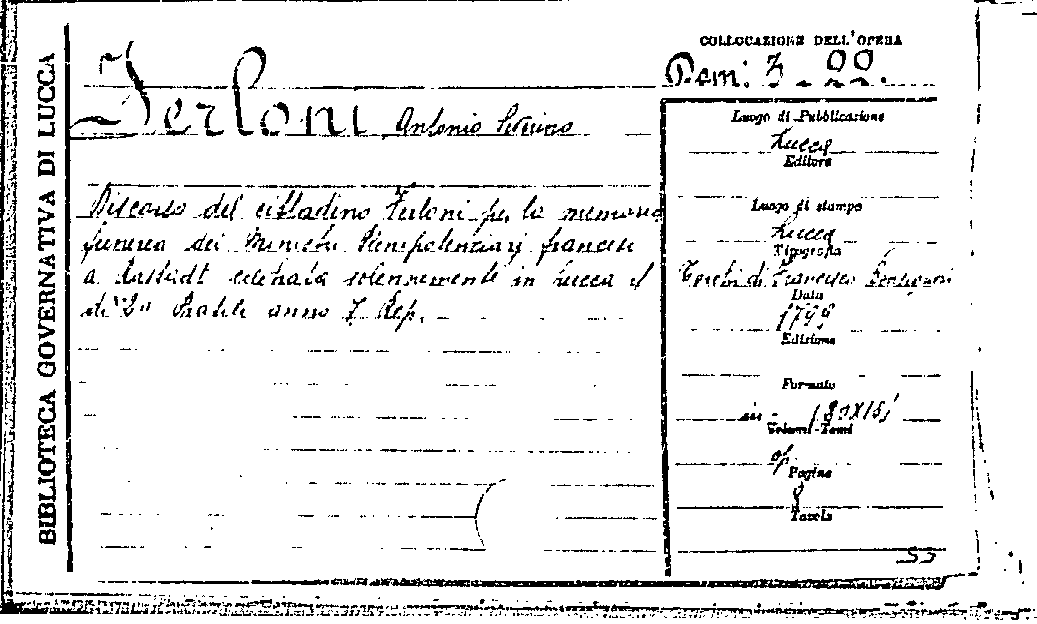 BIBLIOTECA GOVERNATIVA DI LUCCA
COLLOCAZIONE DELL'OPERA
Pam: 3 - 00.
Ferloni Antonio
Discorso del cittadino Ferloni per la memoria
funerea dei Ministri Plenipotenziarj francesi
a Rastadt celebrata solennemente in Lucca il
dì 20 Pratile anno 7 Rep.
Luogo di Pubblicazione
Lucca
Editore
Luogo di stampa
Lucca
Tipografia
di Francesco
Data
1799
Edizione
Formato
in-
Volumi-Tomi
op
Pagine
8
Tavole
53